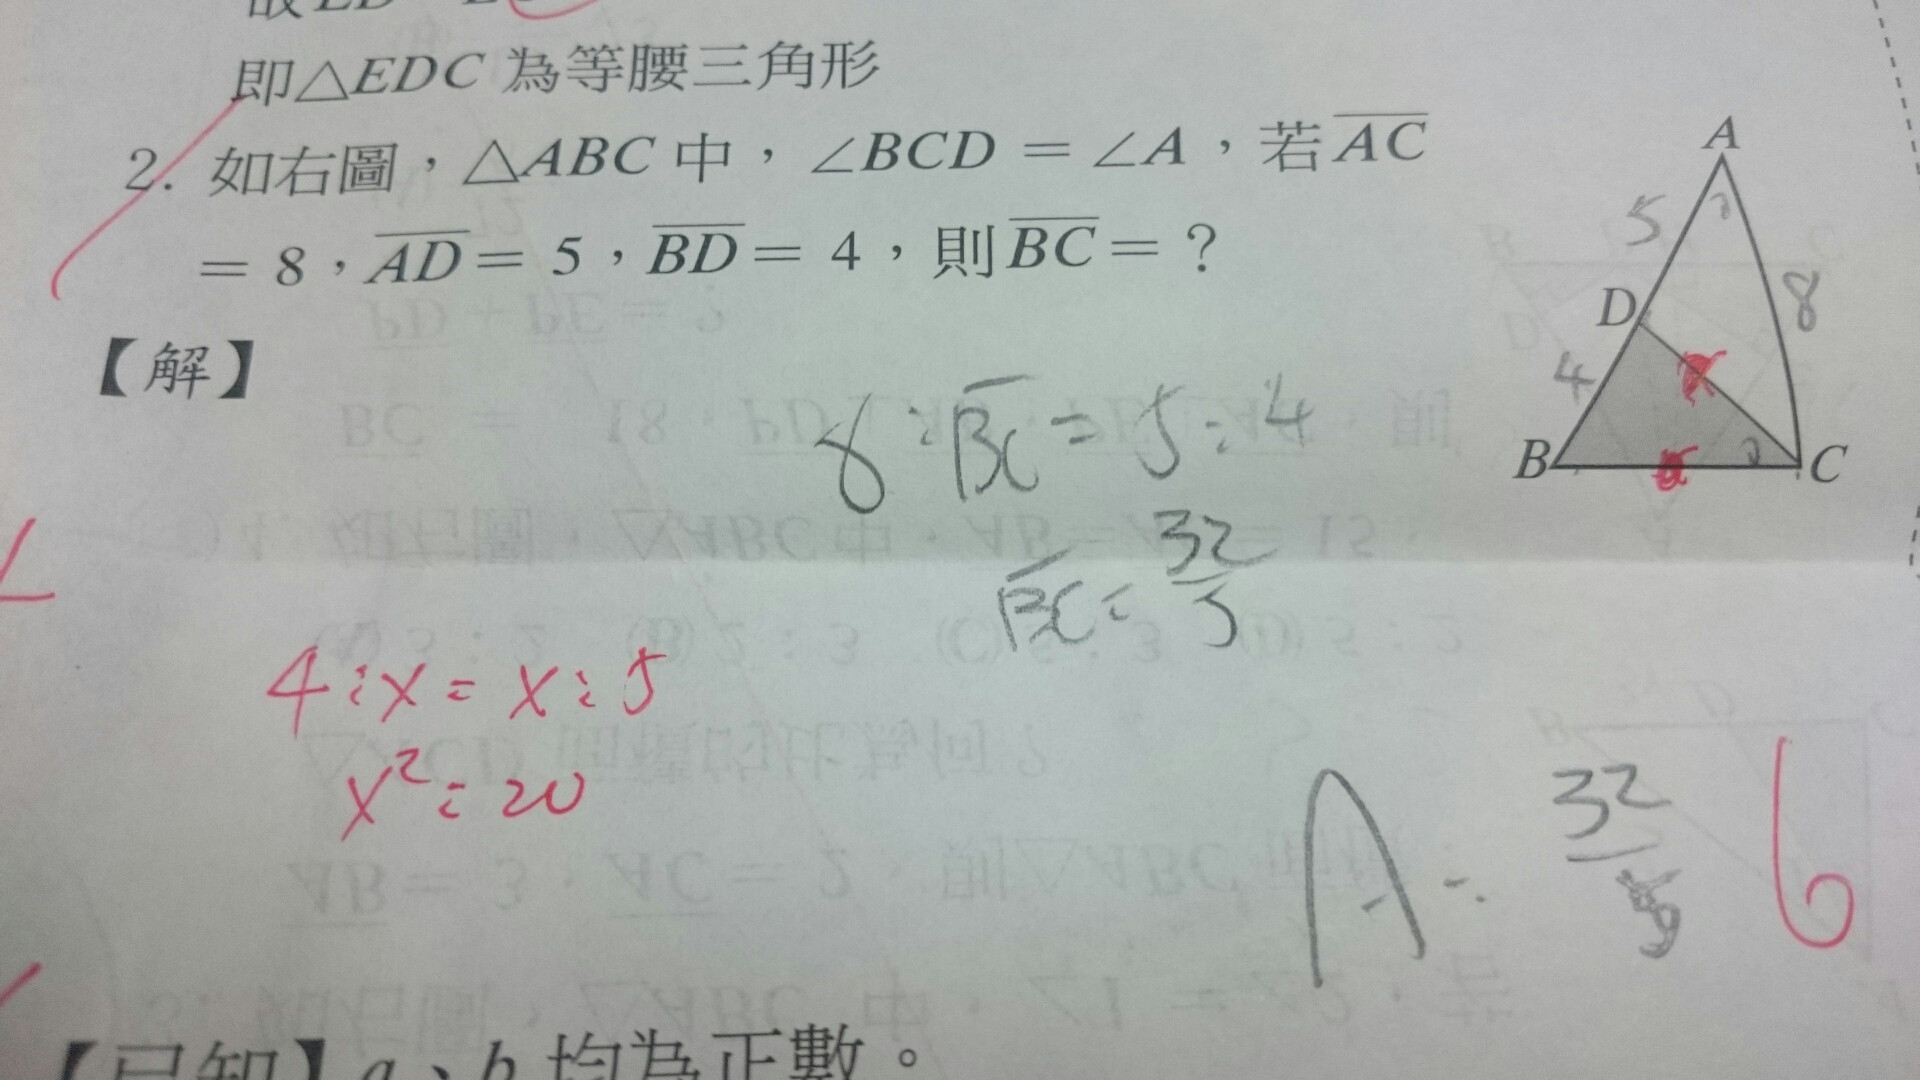 即△EDC 為等腰三角形
2. 如右圖，△ABC 中，∠BCD = ∠A，若AC
= 8，AD = 5，BD = 4，則BC = ？
【解】
A
5
D
8
4
B
C
8:BC = 5:4
BC = 32/5
4:x = x:5
x² = 20
A: 32/5
6
【已知】a、b 均為正數。